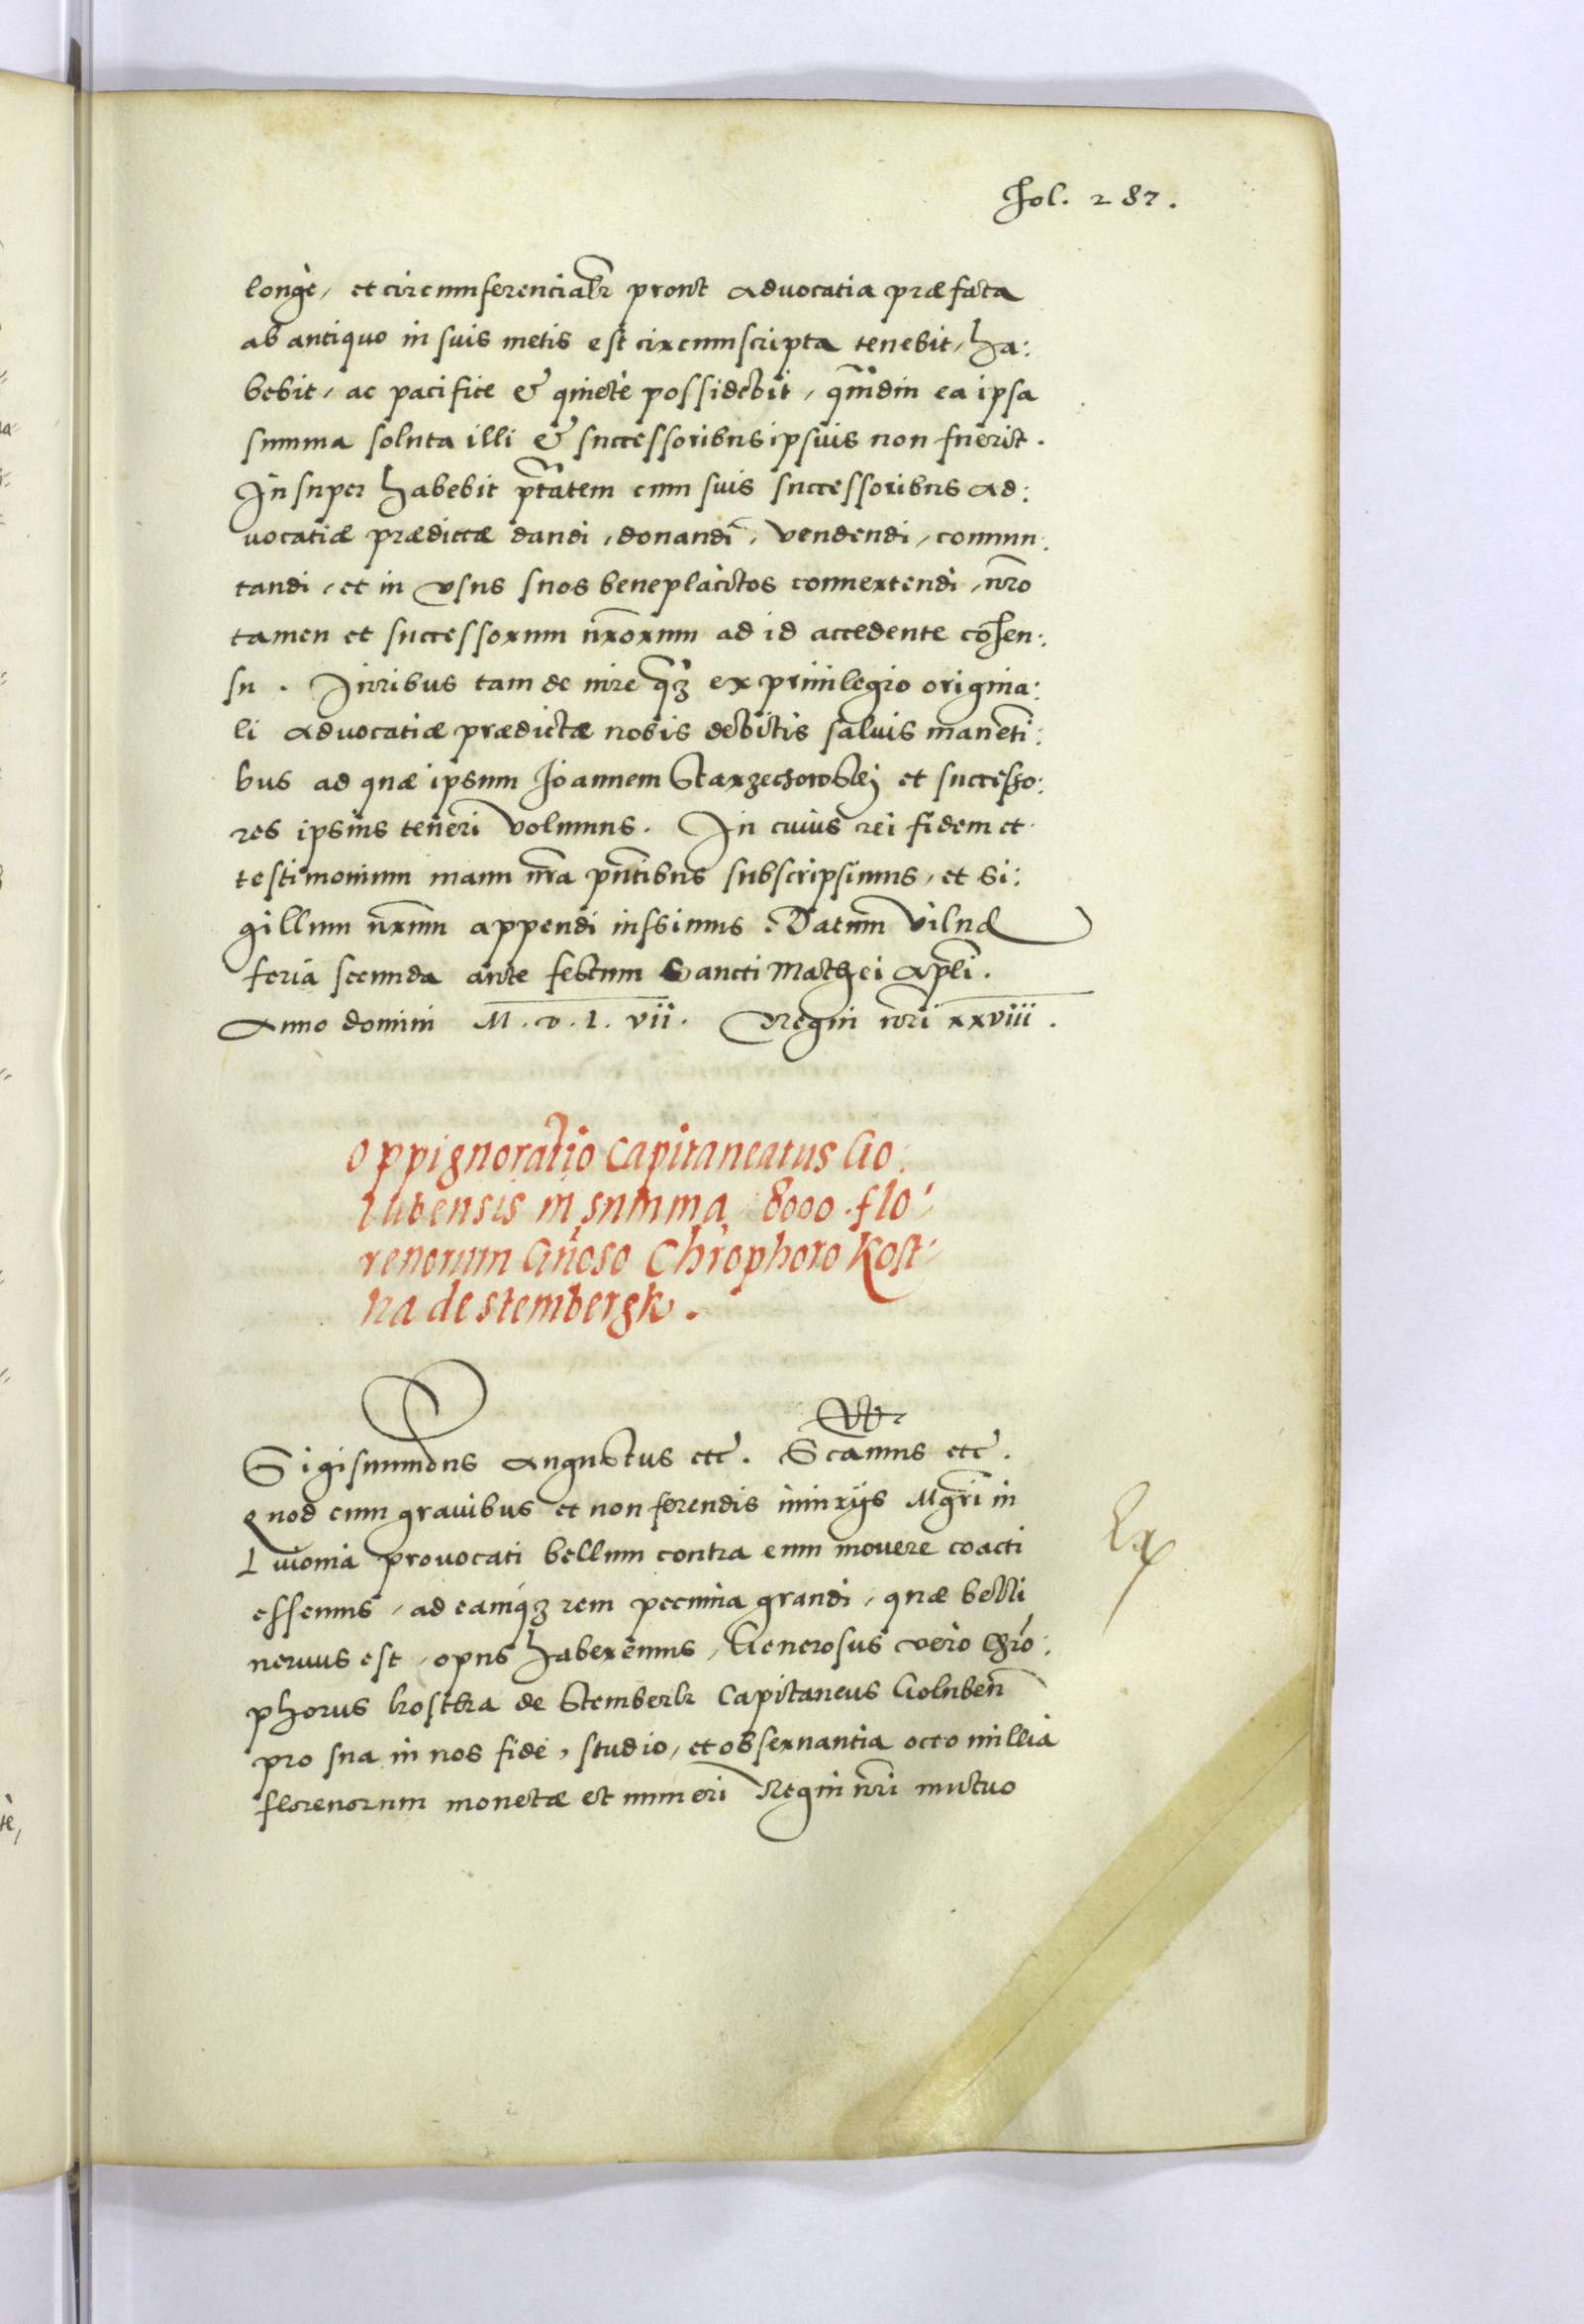 Fol. 287.
longè, et circumferencialr̃ prout advocatia præfata
ab antiquo in suis metis est circumscripta tenebit, ha:
bebit, ac pacifice & quietè possidebit, qm̃diu ea ipsa
summa soluta illi & successoribus ipsius non fuerit.
Insuper habebit ptãtem cum suis successoribus ad:
uocatiæ prædictæ dandi, donandi, vendendi, commu:
tandi, et in vsus suos beneplacitos conuertendi, nr̃o
tamen et successorum nr̃orum ad id accedente cõsen:
su. Iuribus tam de iure q̃ʒ ex priuilegio origina:
li advocatiæ prædictæ nobis debitis saluis manẽti:
bus ad quæ ipsum Joannem Starzechowskj et successo:
res ipsius teneri volumus. In cuius rei fidem et
testimonium manu nr̃a pñtibus subscripsimus, et si:
gillum nr̃um appendi iussimus. Datum Vilnæ
feria secunda ante festum Sancti Mathei Apli.
Anno domini M.D.L.vii. Regni nr̃i xxviii.
Oppignoratio Capitaneatus Go:
lubensis in summa 8000. flo:
renorum Gñoso Chrõphoro Kost:
ka de stembergk.
Sigismundus Augustus etc̃. Scãmus etc̃.
Quod cum grauibus et non ferendis iniurijs Mgr̃i in
Liuonia provocati bellum contra eum mouere coacti
essemus, ad eamq́ʒ rem pecunia grandi, quæ belli
neruus est, opus haberemus, Generosus vero Chrõ:
phorus kostka de Stemberk Capitaneus Golubeñ
pro sua in nos fide, studio, et obseruantia octo millia
florenorum monetæ et numeri Regni nr̃i mutuo